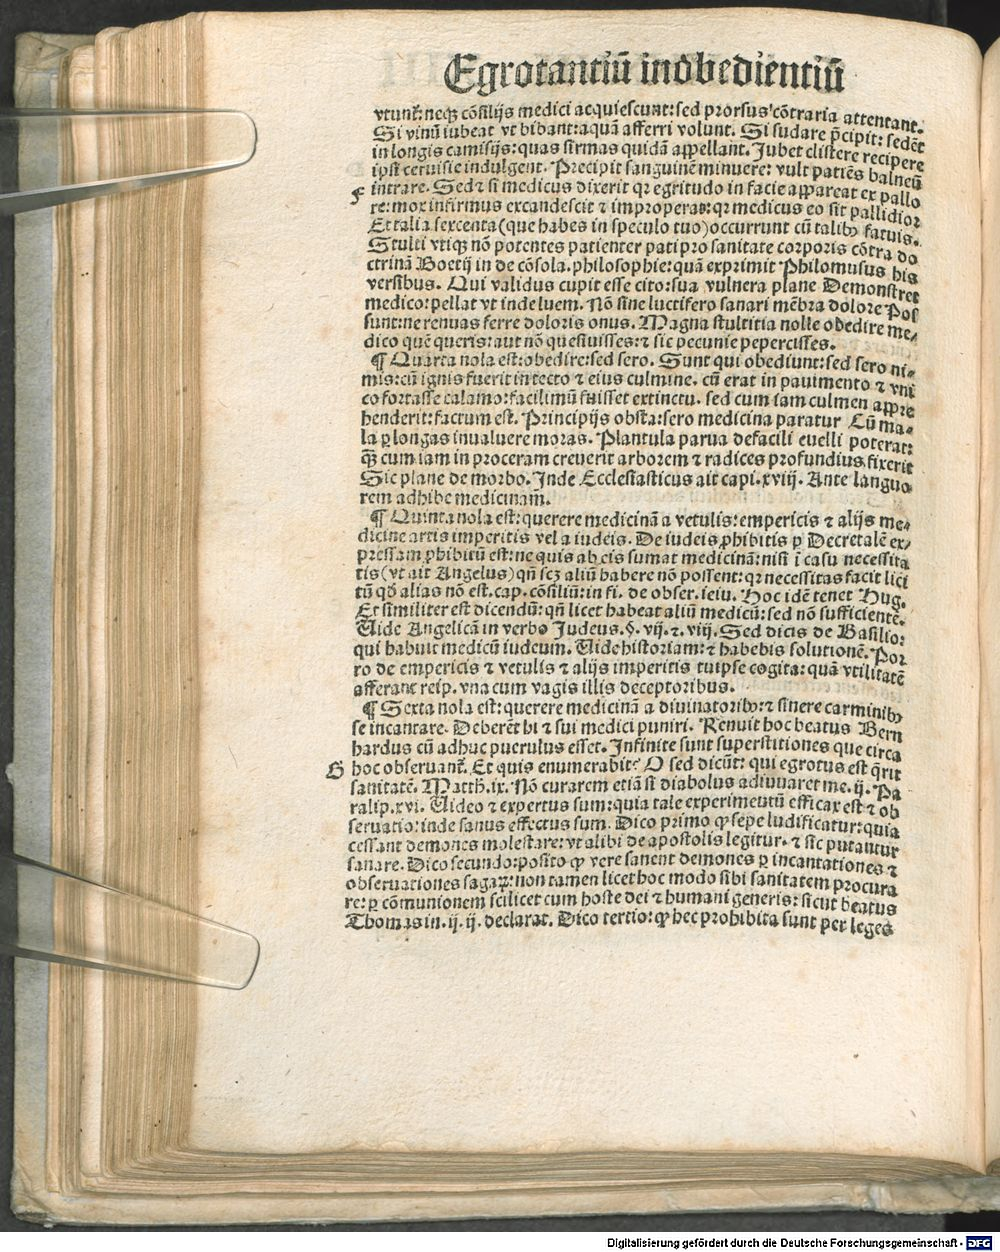 Egrotantiũ inobedientiũ
vtunt̃: neqꝫ cõsilijs medici acquiescunt: sed prorsus cõtraria attentant.
Si vinũ iubeat vt bibant: aquã afferri volunt. Si sudare p̃cipit: sedẽt
in longis camisijs: quas sirmas quidã appellant. Jubet clistere recipere
ipsi ceruisie indulgent. Precipit sanguinẽ minuere: vult patiẽs balneũ
F intrare. Sed ⁊ si medicus dixerit qꝛ egritudo in facie appareat ex pallo
re: mox infirmus excandescit ⁊ improperat: qꝛ medicus eo sit pallidior
Et talia sexcenta (que habes in speculo tuo) occurrunt cũ talibꝰ fatuis.
Stulti vtiqꝫ nõ potentes patienter pati pro sanitate corporis cõtra do
ctrinã Boetij in de cõsola. philosophie: quã exprimit Philomusus his
versibus. Qui validus cupit esse cito: sua vulnera plane Demonstret
medico: pellat vt inde luem. Nõ sine luctifero sanari mẽbra dolore Pos
sunt: ne renuas ferre doloris onus. Magna stultitia nolle obedire me⸗
dico quẽ queris: aut nõ quesiuisses: ⁊ sic pecunie pepercisses.
¶ Quarta nola est: obedire: sed sero. Sunt qui obediunt: sed sero ni⸗
mis: cũ ignis fuerit in tecto ⁊ eius culmine. cũ erat in pauimento ⁊ vni
co fortasse calamo: facilimũ fuisset extinctu. sed cum iam culmen appre
henderit: factum est. Principijs obsta: sero medicina paratur Cũ ma⸗
la ꝑ longas inualuere moras. Plantula parua defacili euelli poterat:
q̃ꝫ cum iam in proceram creuerit arborem ⁊ radices profundius fixerit
Sic plane de morbo. Inde Ecclesiasticus ait capi. xviij. Ante languo
rem adhibe medicinam.
¶ Quinta nola est: querere medicinã a vetulis: empericis ⁊ alijs me⸗
dicine artis imperitis vel a iudeis. De iudeis ꝓhibitis ꝑ Decretalẽ ex⸗
pressam ꝓhibitũ est: ne quis ab eis sumat medicinã: nisi ĩ casu necessita
tis (vt ait Angelus) qñ scꝫ aliũ habere nõ possent: qꝛ necessitas facit lici
tũ qđ alias nõ est. cap. cõsiliũ: in fi. de obser. ieiu. Hoc idẽ tenet Hug.
Et similiter est dicendũ: qñ licet habeat aliũ medicũ: sed nõ sufficientẽ.
Uide Angelicã in verbo Judeus. §. vij. ⁊. viij. Sed dicis de Basilio:
qui habuit medicũ iudeum. Uide historiam: ⁊ habebis solutionẽ. Por
ro de empericis ⁊ vetulis ⁊ alijs imperitis tuipse cogita: quã vtilitatẽ
afferant reip. vna cum vagis illis deceptoribus.
¶ Sexta nola est: querere medicinã a diuinatoribꝰ: ⁊ sinere carminibꝰ
se incantare. Deberẽt hi ⁊ sui medici puniri. Renuit hoc beatus Bern
hardus cũ adhuc puerulus esset. Infinite sunt superstitiones que circa
G hoc obseruant̃. Et quis enumerabit? O sed dicũt: qui egrotus est q̃rit
sanitatẽ. Matth. ix. Nõ curarem etiã si diabolus adiuuaret me. ij. Pa
ralip. xvi. Uideo ⁊ expertus sum: quia tale experimentũ efficax est ⁊ ob
seruatio: inde sanus effectus sum. Dico primo ꝙ sepe ludificatur: quia
cessant demones molestare: vt alibi de apostolis legitur. ⁊ sic putantur
sanare. Dico secundo: posito ꝙ vere sanent demones ꝑ incantationes ⁊
obseruationes sagaꝝ: non tamen licet hoc modo sibi sanitatem procura
re: ꝑ cõmunionem scilicet cum hoste dei ⁊ humani generis: sicut beatus
Thomas in. ij. ij. declarat. Dico tertio: ꝙ hec prohibita sunt per leges
Digitalisierung gefördert durch die Deutsche Forschungsgemeinschaft - DFG